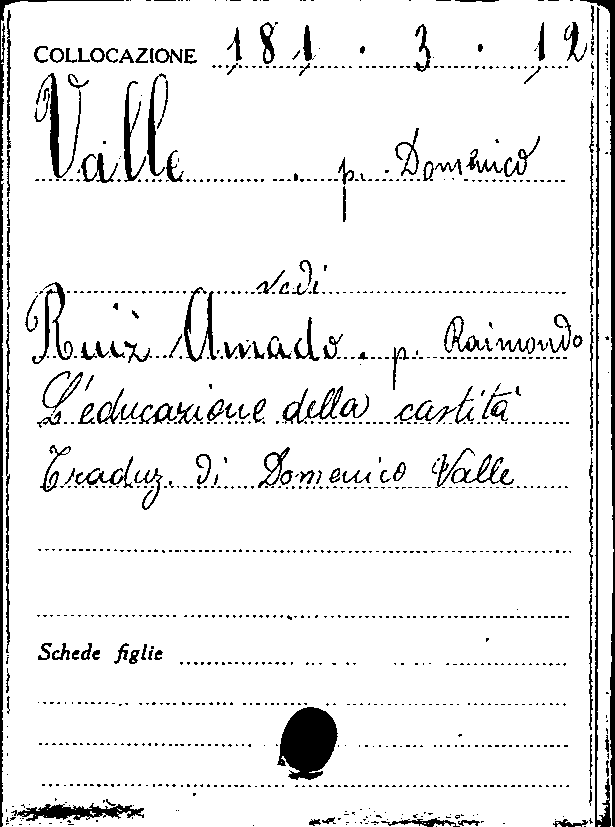 COLLOCAZIONE 181 . 3 . 12
Valle . p. Domenico
vedi
Ruiz Amado . p. Raimondo
L'educazione della castità
Traduz. di Domenico Valle
Schede figlie